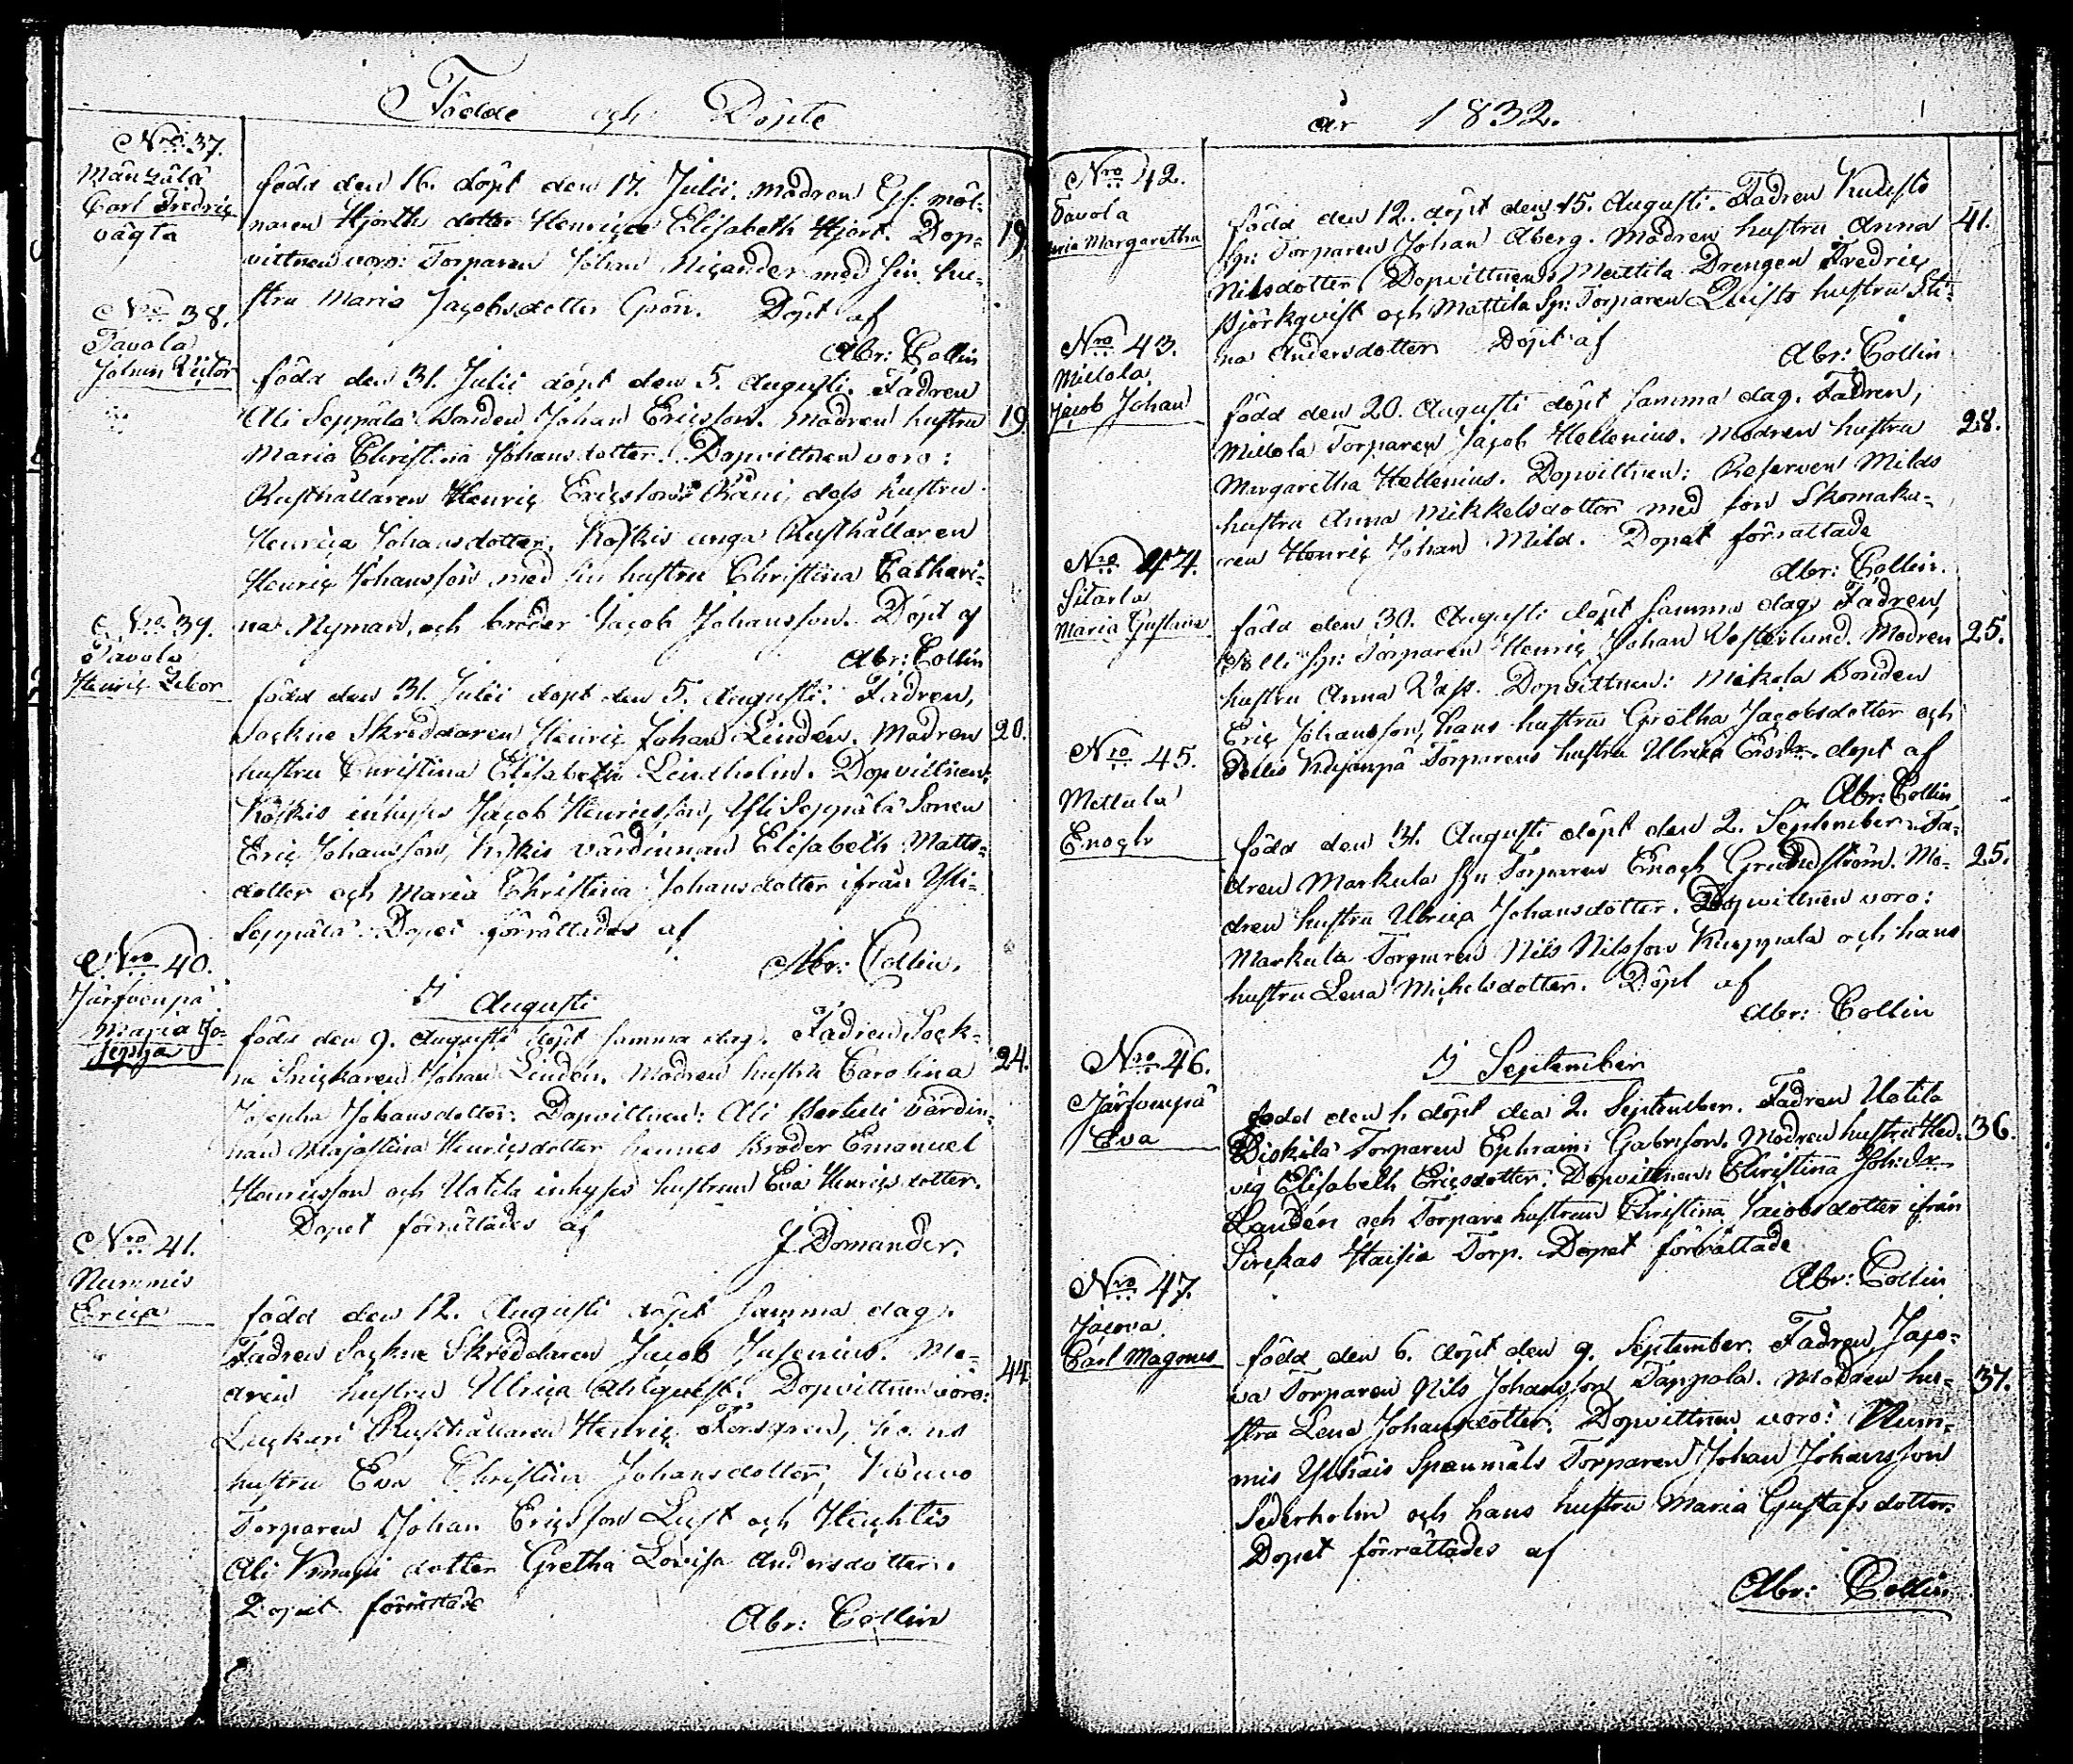 Födde och Döpte
Nro 37.
Mäntzälä
Carl Fredric
oägta
född den 16. döpt den 17. Julii. Modren Gf: möl-
naren Hjorth dotter Henrica Elisabeth Hjort. Dop-
19.
vittnen voro: Torparen Johan Nicander med sin hu-
stru Maria Jacobsdotter Grön. Döpt af
Abr: Collin
Nro 38.
Tavola
Johan Victor
född den 31. Julii döpt den 5. Augusti. Fadren
Ali Seppälä Bonden Johan Ericsson. Modren hustru
19.
Maria Christina Johansdotter. Dopvittnen voro:
Rusthållaren Henric Ericsson dess hustru
Henrica Johansdotter, Koskis unga Rusthållaren
Henric Johansson med sin hustru Christina Cathari-
na Nyman, och broder Jacob Johansson. Döpt af
Abr: Collin
Nro 39.
Tavola
Henric
född den 31. Julii döpt den 5. Augusti. Fadren,
Sockne Skreddaren Henric Johan Lindén. Modren
20.
hustru Christina Elisabeth Lindholm. Dopvittnen:
Koskis inhyses Jacob Henricsson, Yli Seppälä Sonen
Eric Johansson, värdinnan Elisabeth Matts-
dotter och Maria Christina Johansdotter ifrån Yli-
Seppälä. Dopet förrättades af
Abr: Collin.
I Augusti
Nro 40.
Järfvenpä
Maria Jo-
sepha
född den 9. Augusti döpt samma dag. Fadren Sock-
ne Snickaren Johan Lindén. Modren hustru Carolina
24.
Josepha Johansdotter. Dopvittnen: Ali Perttuli värdin-
nan Majastina Henricsdotter hennes Broder Emanuel
Henricsson och Uotila inhyses hustrun Eva Henricsdotter.
Dopet förrättades af
J. Domander.
Nro 41.
Nummis
Erica
född den 12. Augusti döpt samma dag.
Fadren Sockne Skreddaren Jacob Jusenius. Mo-
dren hustru Ulrica Ahlqvist. Dopvittnen voro:
44
Rusthållaren Henric Forsgren, hans
hustru Eva Christina Johansdotter,
Torparen Johan Ericsson Lust och
Ali dotter Gretha Lovisa Andersdotter.
Dopet förrättade
Abr: Collin
år 1832.
Nro 42.
Tavola
Maria Margaretha
född den 12. döpt den 15. Augusti. Fadren Knuts
41.
Sp: Torparen Johan Åberg. Modren hustru Anna
Nilsdotter. Dopvittnen: Mattila Drengen Fredric
Björkqvist och Mattila Sp: Torparen Qvists hustru Sti-
na Andersdotter. Döpt af
Abr: Collin
Nro 43.
Millola
Jacob Johan
född den 20. Augusti döpt samma dag. Fadren,
Millola Torparen Jacob Hellenius. Modren hustru
28.
Margaretha Hellenius. Dopvittnen: Reserven Milds
hustru Anna Mikkelsdotter med son Skomaka-
ren Henric Johan Mild. Dopet förrättade
Abr: Collin.
Nro 44.
Sitarla
Maria Gustava
född den 30. Augusti döpt samma dag. Fadren,
Sp: Torparen Henric Johan Vesterlund. Modren
25.
hustru Anna Vass. Dopvittnen: Mickola Bonden
Eric Johansson, hans hustru Gretha Jacobsdotter och
Torparens hustru Ulrica döpt af
Abr: Collin
Nro 45.
Mettula
Enoch
född den 31. Augusti döpt den 2. September. Fa-
dren Markula Sp: Torparen Enoch Grundström. Mo-
25.
dren hustru Ulrica Johansdotter. Dopvittnen voro:
Markula Torparen Nils Nilsson Kuoppala och hans
hustru Lena Michelsdotter. Döpt af
Abr: Collin
I September
Nro 46.
Järfvenpä
Eva
född den 1. döpt den 2. September. Fadren Uotila
Torparen Ephraim Gabrisson. Modren hustru Hed-
36.
vig Elisabeth Ericsdotter. Dopvittnen: Christina Joh:dr
Landén och Torpare hustrun Christina Jacobsdotter ifrån
Sirckas Torp. Dopet förrättade
Abr: Collin
Nro 47.
Jacova
Carl Magnus
född den 6. döpt den 9. September. Fadren, Jaco-
va Torparen Nils Johansson Tappola. Modren hu-
37.
stru Lena Johansdotter. Dopvittnen voro: Num-
mis Torparen Johan Johansson
Sederholm och hans hustru Maria Gustafsdotter.
Dopet förrättades af
Abr: Collin